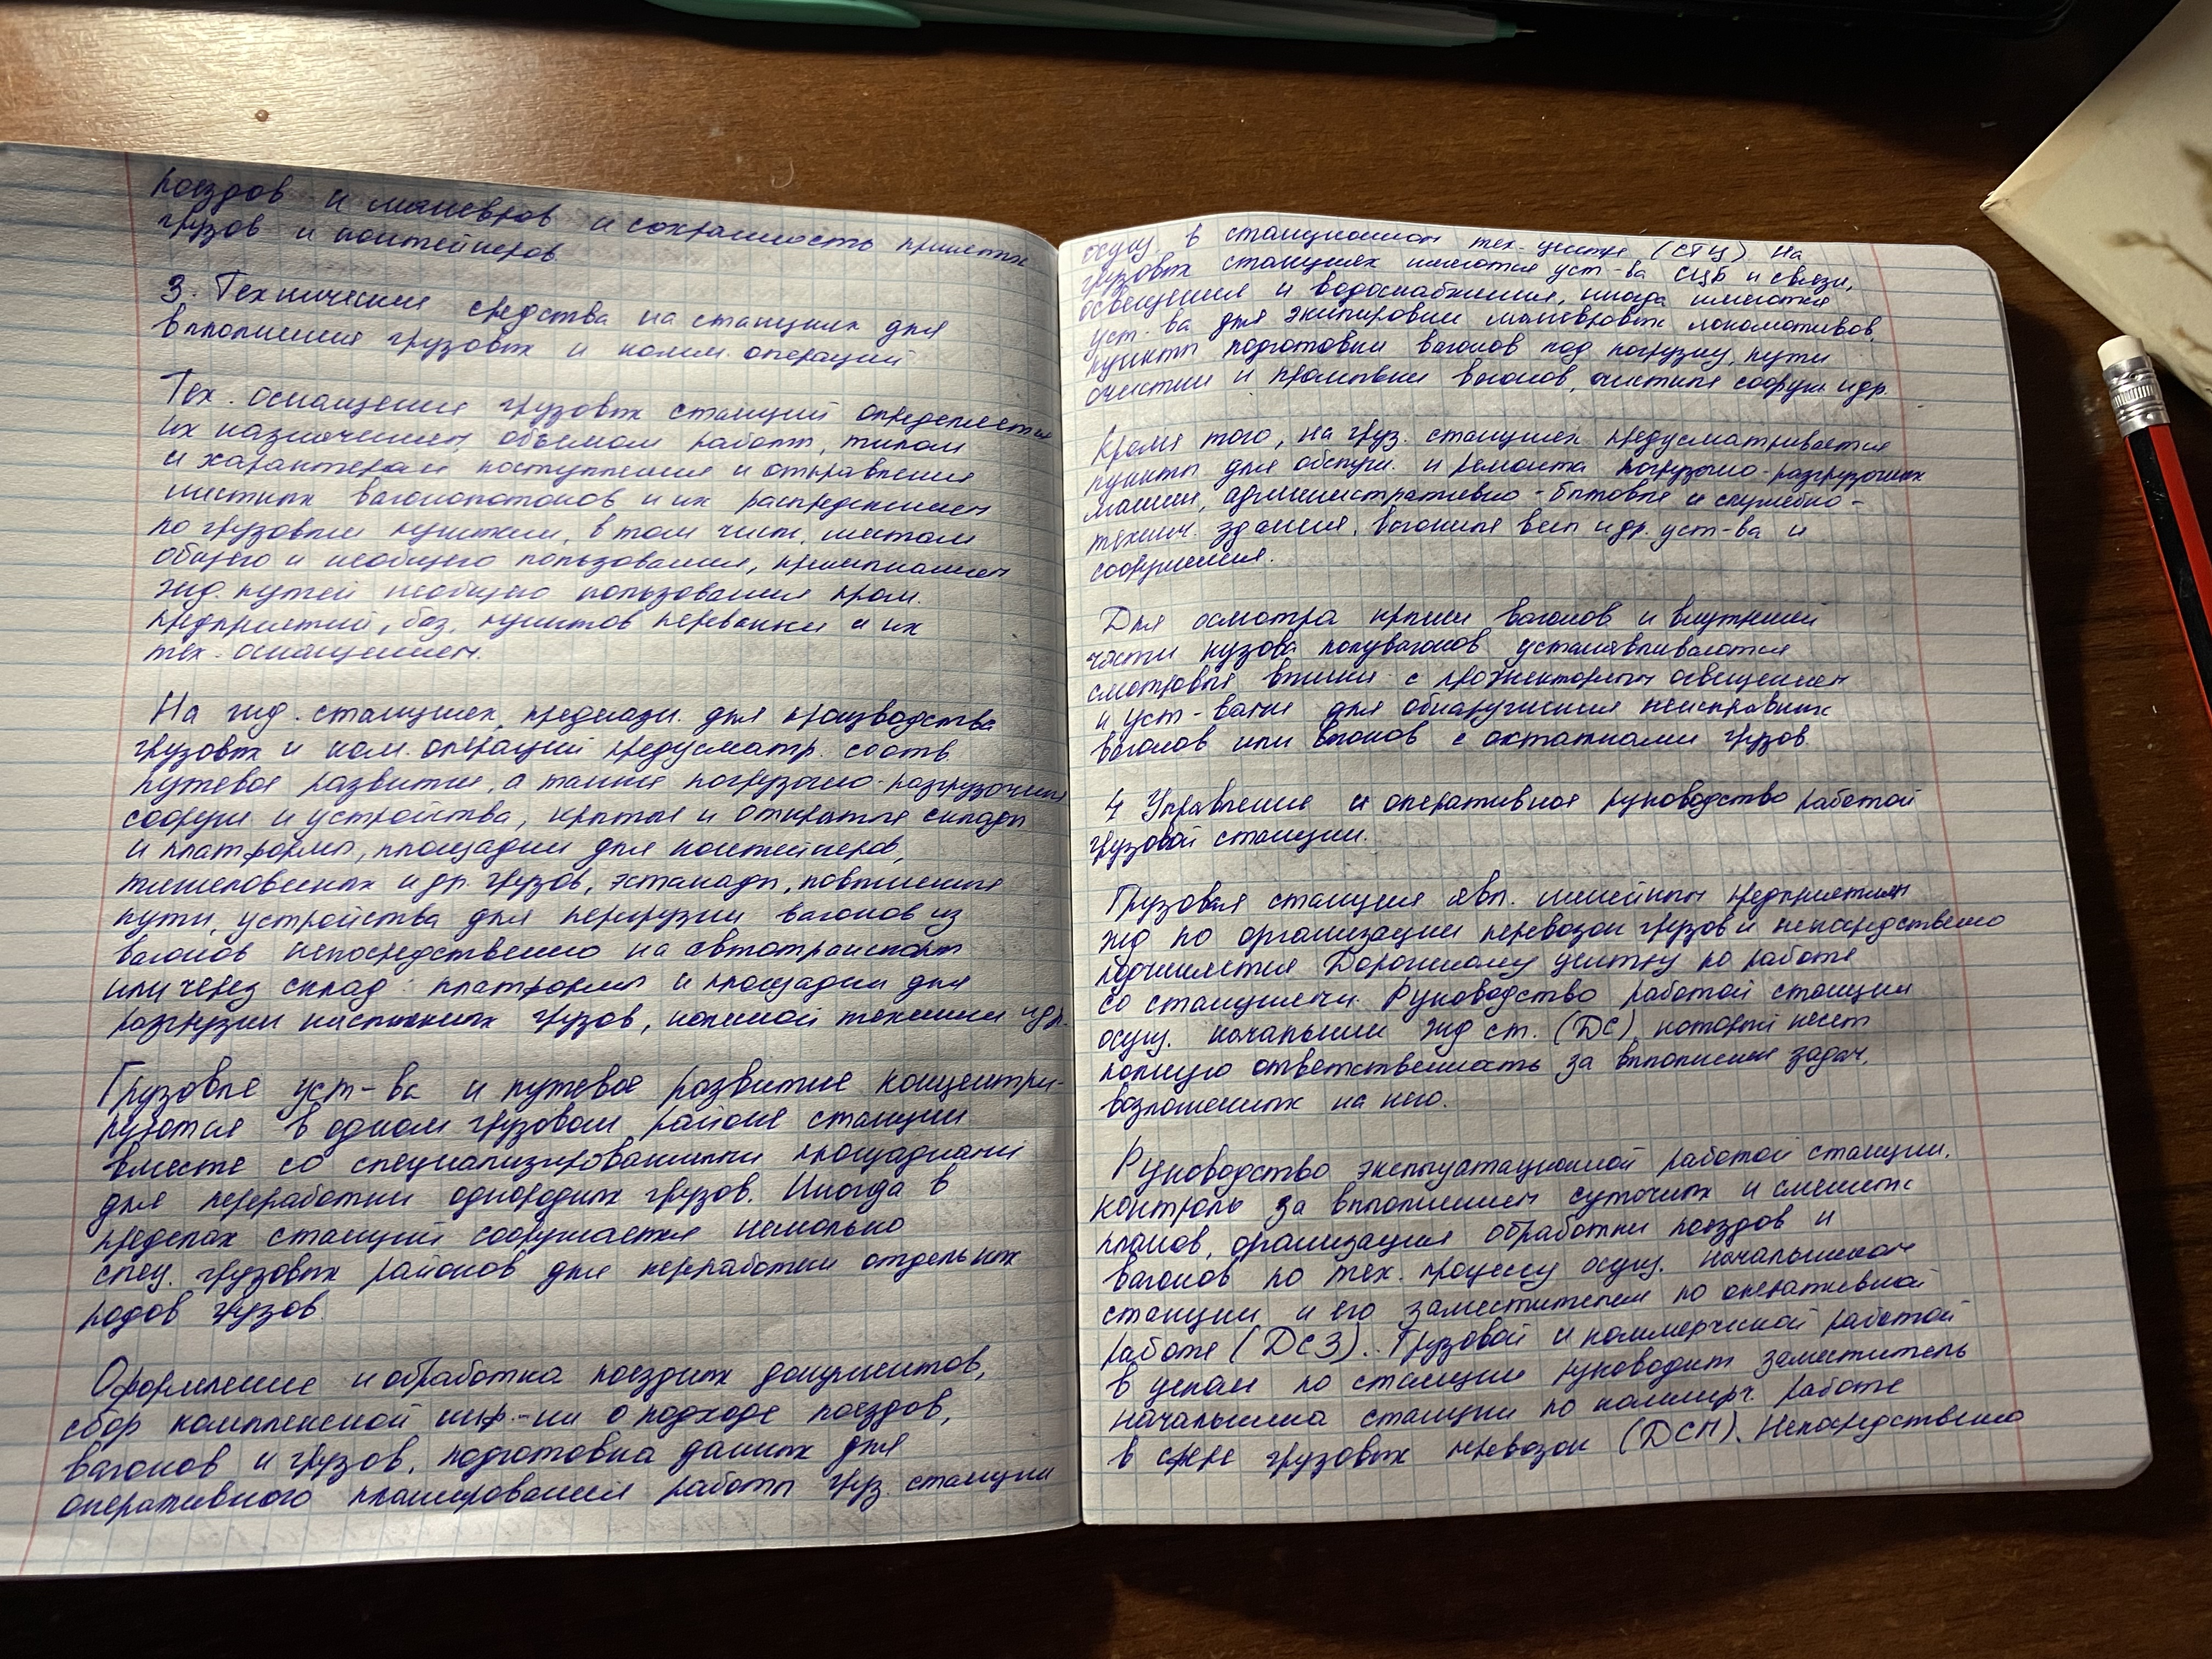 поездов и маневров и сохранность принятых
грузов и контейнеров
3. Технические средства на станциях для
выполнения грузовых и комм. операций
Тех. оснащение грузовых станций определяется
их назначением, объемом работы, типом
и характером поступления и отправления
местных вагонопотоков и их распределением
по грузовым пунктам, в том числ. местам
общего и необщего пользования, примыканием
жд. путей необщего пользования пром.
предприятий, баз, пунктов перевалки и их
тех. оснащением.
На жд. станциях, предназн. для производства
грузовых и ком. операций предусматр. соотв.
путевое развитие, а также погрузочно-разгрузочные
сооруж и устройства, крытые и открытые склады
и платформы, площадки для контейнеров,
тяжеловесных и др. грузов, эстакады, повышенные
пути, устройства для перегрузки вагонов из
вагонов непосредственно на автотранспорт
или через склад. платформы и площадки для
разгрузки насыпных грузов, колесной техники и др.
Грузовые уст-ва и путевое развитие концентри-
руются в одном грузовом районе станции
вместе со специализированными площадками
для переработки однородных грузов. Иногда в
пределах станций сооружается несколько
спец. грузовых районов для переработки отдельных
родов грузов.
Оформление и обработка поездных документов,
сбор комплексной инф.-ии о подходе поездов,
вагонов и грузов, подготовка данных для
оперативного планирования работы груз. станции
осущ. в станционном тех. центре (СТЦ). На
грузовых станциях имеются уст-ва СЦБ и связи,
освещения и водоснабжения, иногда имеются
уст-ва для экипировки маневровых локомотивов,
пункты подготовки вагонов под погрузку, пути
очистки и промывки вагонов, очистные сооруж. и др.
Кроме того, на груз. станциях предусматривается
пункты для обслуж. и ремонта погрузочно-разгрузочных
машин, административно-бытовые и служебно-
технич. здания, вагонные весы и др. уст-ва и
сооружения.
Для осмотра крыши вагонов и внутренней
части кузова полувагонов устанавливаются
смотровые вышки с прожекторным освещением
и уст-вами для обнаружения неисправных
вагонов или вагонов с остатками грузов.
4 Управление и оперативное руководство работой
грузовой станции.
Грузовая станция явл. линейным предприятием
жд по организации перевозок грузов и непосредственно
подчиняется Дорожному центру по работе
со станциями. Руководство работой станции
осущ. начальник жд ст. (ДС), который несет
полную ответственность за выполнение задач,
возложенных на него.
Руководство эксплуатационной работой станции,
контроль за выполнением суточных и сменных
планов, организация обработки поездов и
вагонов по тех. процессу осущ. начальником
станции и его заместителем по оперативной
работе (ДСЗ). Грузовой и коммерческой работой
в целом по станции руководит заместитель
начальника станции по коммерч. работе
в сфере грузовых перевозок (ДСМ). Непосредственно